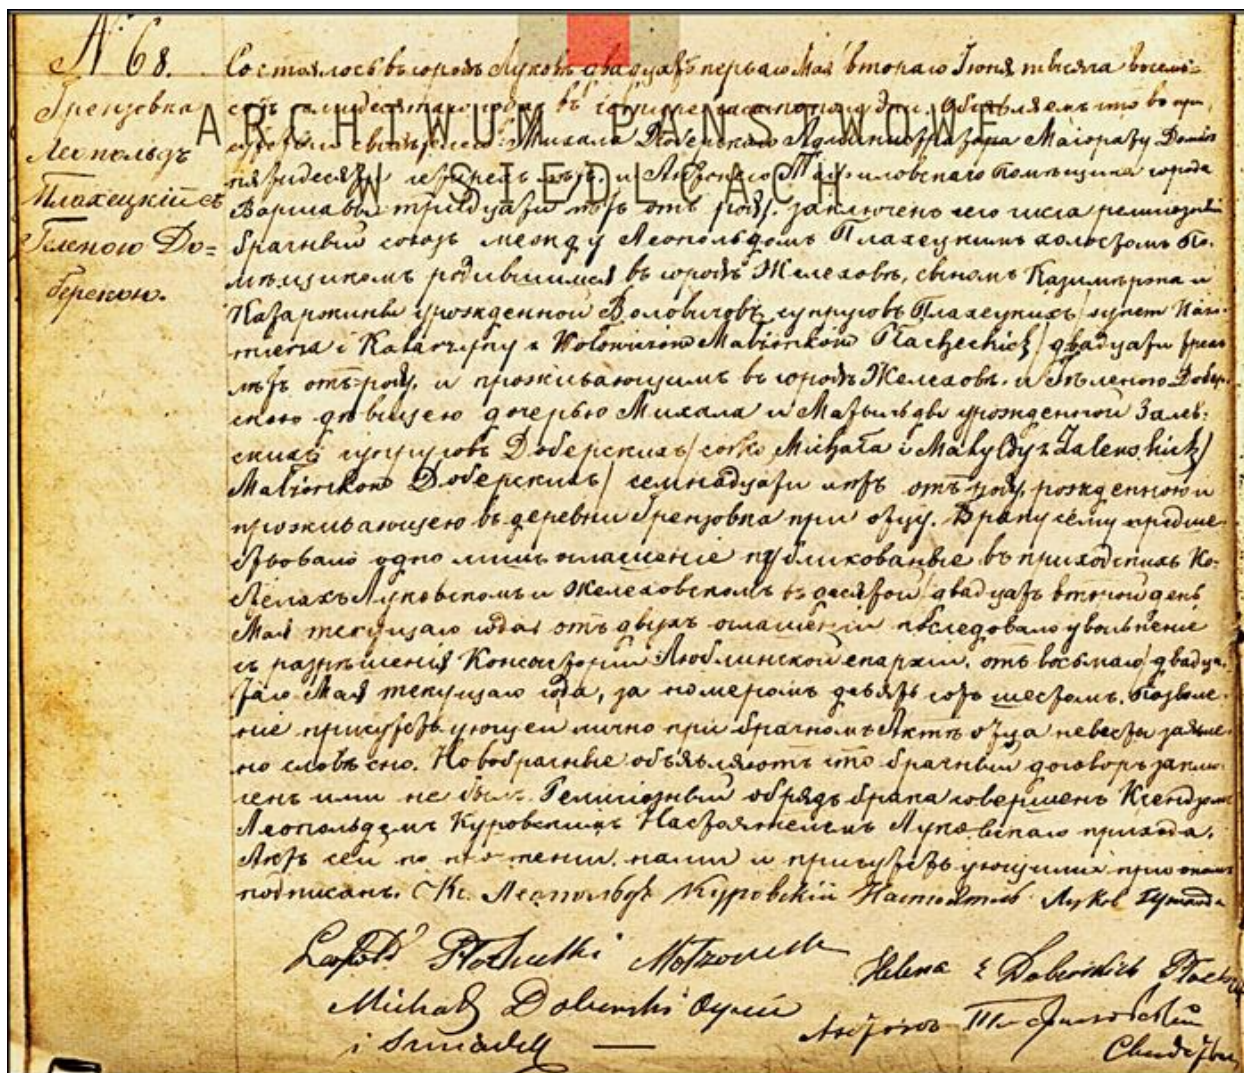 № 68.
Грензовка
Леопольдъ
Плахецкій съ
Геленою До=
берскою.
ARCHIWUM PAŃSTWOWE
W SIEDLCACH
Состоялось въ городѣ Луковѣ двадцать перваго Мая втораго Іюня тысяча восемь=
сотъ семидесятаго года въ часа по полудни. Объявляемъ что въ при=
сутствіи свидѣтелей Михала Доберскаго Администратора Маіората
пятидесяти четырехъ лѣтъ, и Антонего помѣщика города
Варшавы тридцати лѣтъ отъ роду. заключенъ сего числа религіозный
брачный союзъ между Леопольдомъ Плахецкимъ холостомъ По=
мѣщикомъ родившимся въ городѣ Желеховѣ, сыномъ Казимѣржа и
Катаржины урожденной Воловичовъ супруговъ Плахецкихъ /
i Katarzyny z Wołowiczow Małżonkow Płacheckich / двадцати трехъ
лѣтъ отъ роду, и проживающимъ въ городѣ Желеховѣ, и Геленою Добер=
скою дѣвицею дочерью Михала и Матыльды урожденной Залев=
скихъ супруговъ Доберскихъ / córko Michała i Matyldy z Zalewskich /
Małżonkow Доберскихъ / семнадцати лѣтъ отъ роду, рожденною и
проживающею въ деревни Грензовка при отцу. Браку сему предше=
ствовало одно лишь оглашеніе публикованные въ приходскихъ Ко=
стелахъ Луковскомъ и Желеховскомъ въ десятой / двадцать второй день
Мая текущаго года отъ двухъ оглашеній послѣдовало увольненіе
съ разрѣшенія Консисторіи Люблинской епархіи, отъ восьмаго / двадца=
таго Мая текущаго года, за номеромъ девять сотъ шестомъ. Позволе=
ніе присутствующей лично при брачномъ Актѣ отца невесты заявле=
но словѣсно. Новобрачные объявляютъ что брачный договоръ заклю=
ченъ ими не былъ. Религіозный обрядъ брака совершенъ Ксендзомъ
Леопольдомъ Куровскимъ Настоятелемъ Луковскаго прихода.
Актъ сей по прочтеніи, нами и присутствующими при ономъ
подписанъ. Кс. Леопольдъ Куровскій Настоятель Луков. Прихода
Leopold Płachecki Helena z Doberskich
Michał Doberski Ojciec Антоній
i Świadek